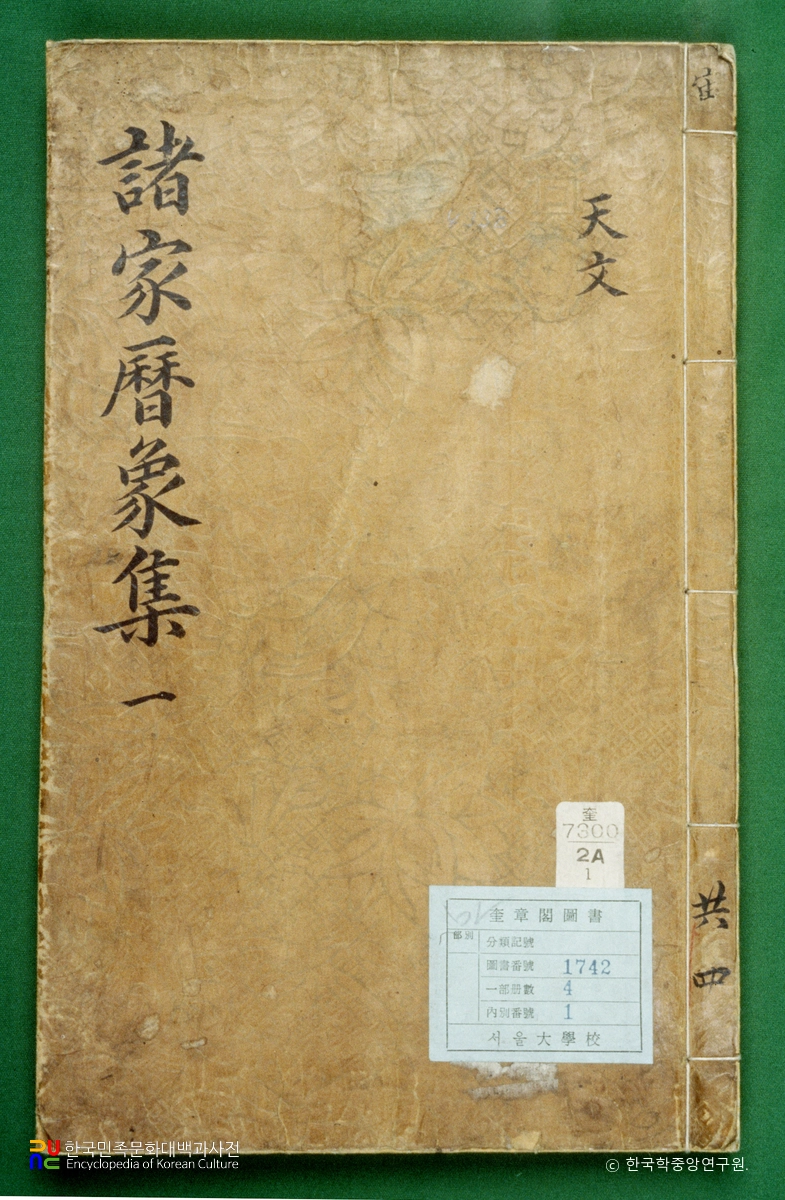 諸家曆象集 一
天文
共四
奎
7300
2A
1
奎章閣圖書
部別
分類記號
圖書番號 1742
一部冊數 4
內別番號 1
서울大學校
한국민족문화대백과사전
Encyclopedia of Korean Culture
© 한국학중앙연구원.